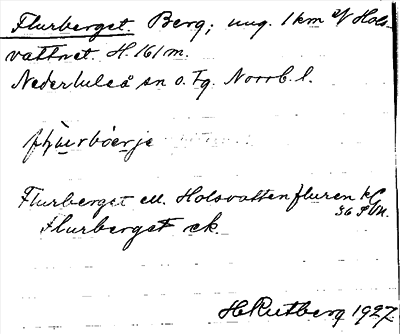 Flurberget. Berg; ung. 1 km N Hols-
vattnet. H. 161 m.
Nederluleå sn o. Tg. Norrb. l.
Flurberget ell. Holsvattenfluren kC
36 SVM.
Flurberget ek.
H. Rutberg 1927.